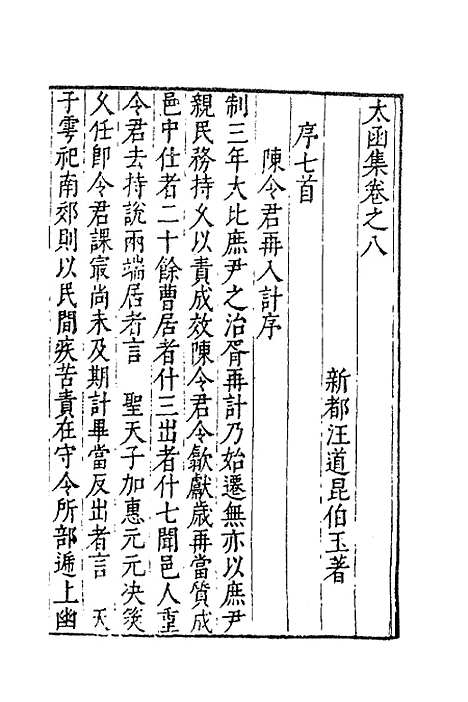 太函集卷之八
新都汪道昆伯玉著
序七首
陳令君再入計序
制三年大比庶尹之治胥再計乃始遷無亦以庶尹
親民務持久以責成效陳令君令歙獻歲再當質成
邑中仕者二十餘曹居者什三出者什七聞邑人重
令君去持說兩端居者言　聖天子加惠元元決筴
久任即令君課最尚未及期計畢當反出者言　天
子雩祀南郊則以民間疾苦責在守令所部遞上函